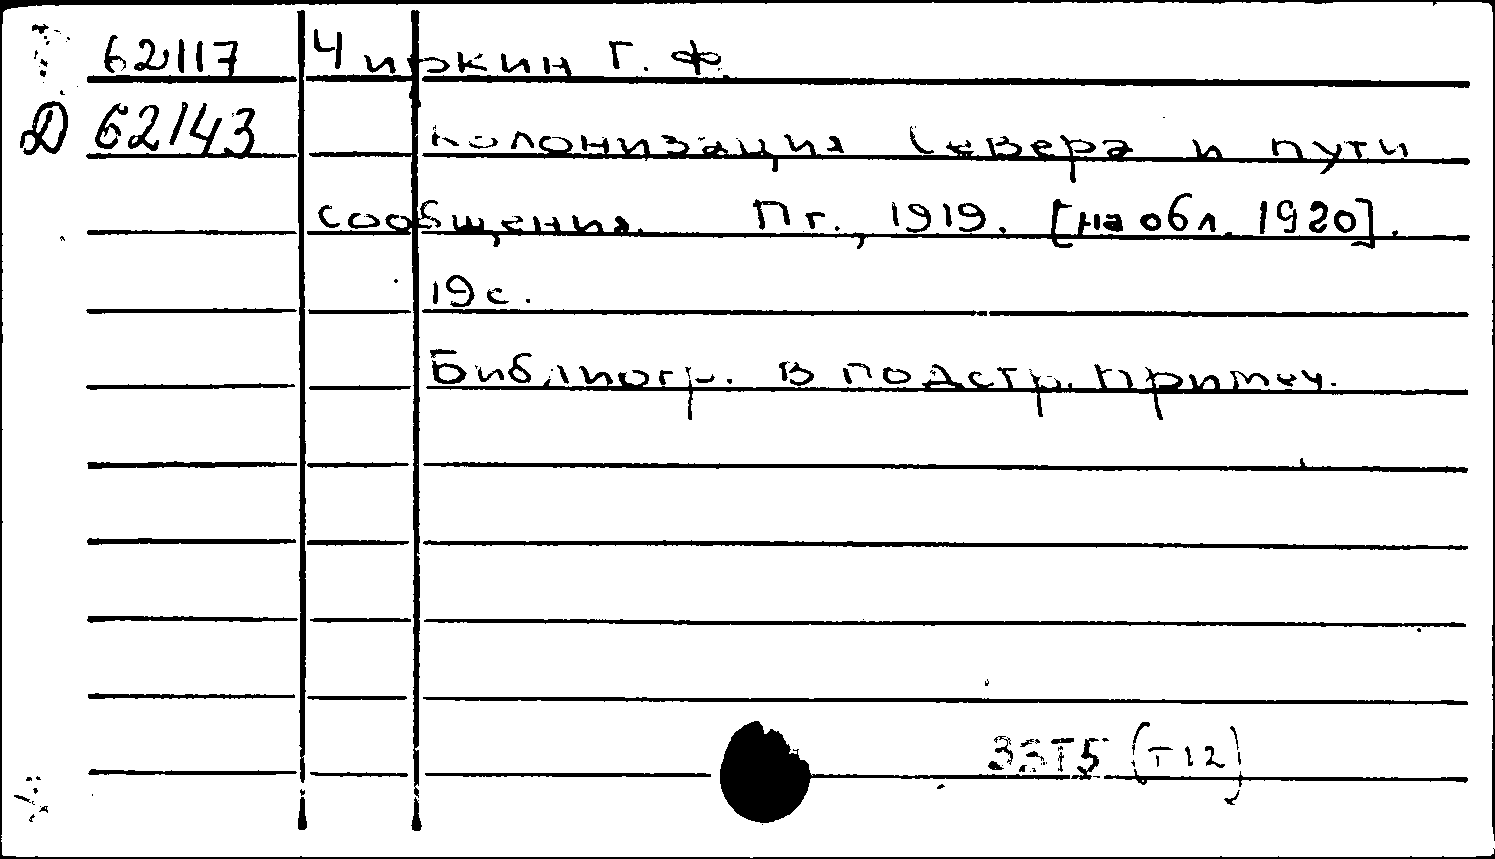 62117 Чиркин Г. Ф.
Д 62143 Колонизация Севера и пути
сообщения. Пг., 1919. [на обл. 1920].
19 с.
Библиогр. в подстр. примеч.
33Т5 (Т12)